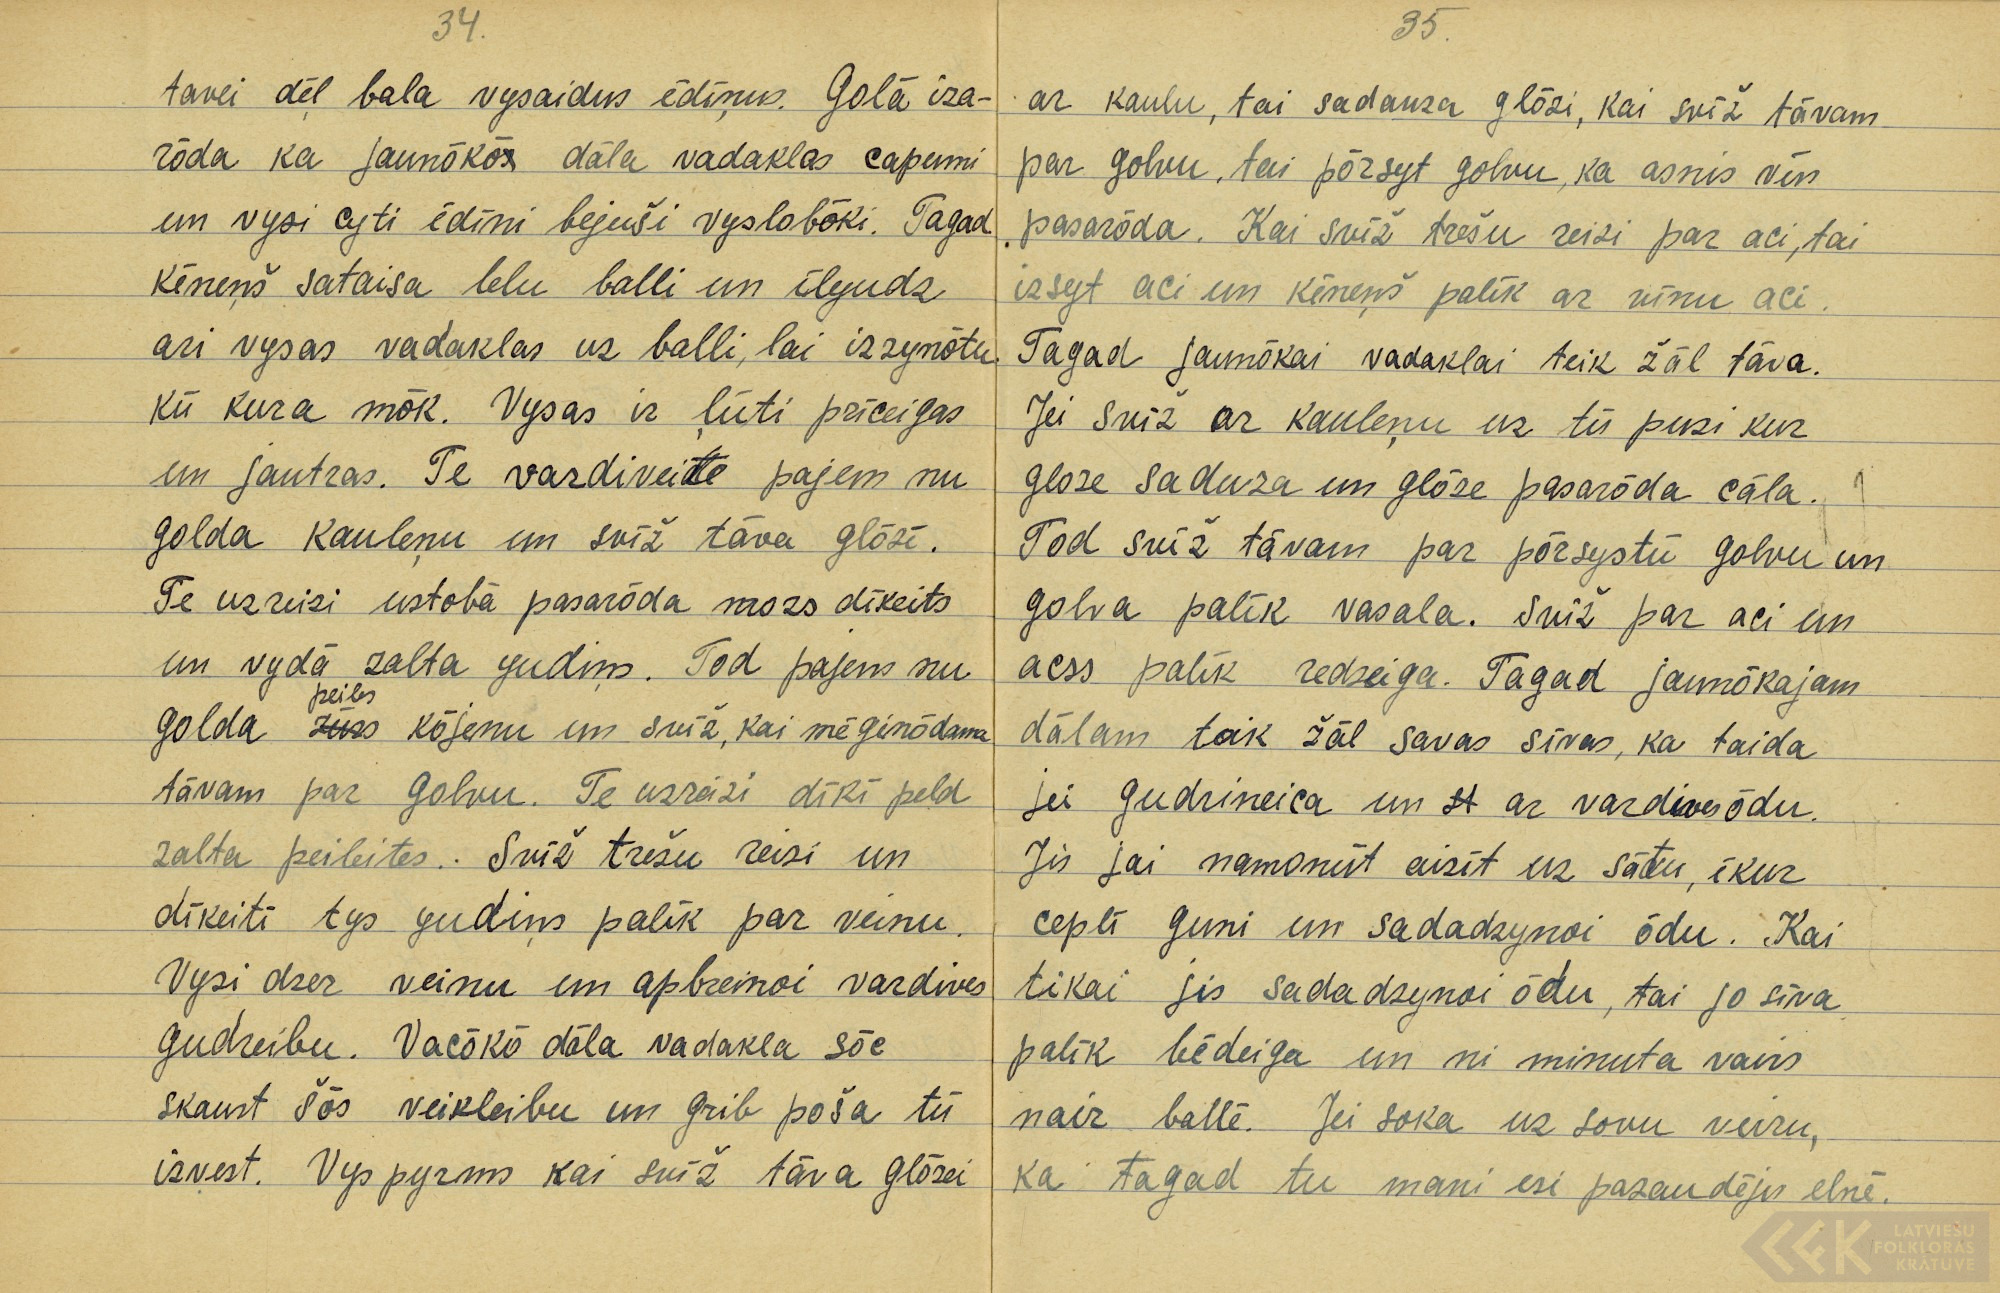 34.
tavei dēļ bala vysaidus ēdīņus. Golā iza-
rōda ka jaunōkōs dāla vadaklas capumi
un vysi cyti ēdīni bejuši vyslobōki. Tagad
kēneņš sataisa lelu balli un īlyudz
ari vysas vadaklas uz balli, lai izzynōtu
kū kura mōk. Vysas ir ļūti prīceigas
un jautras. Te vardiveite pajem nu
golda kauleņu un svīž tāva glōzē.
Te uzreizi ustobā pasarōda mozs dīkeits
un vydā zalta yudiņs. Tod pajem nu
peiles
golda zūss kōjenu un svīž, kai mēginōdama
tāvam par golvu. Te uzreizi dīkī peld
zalta peileites. Svīž trešu reizi un
dīkeitī tys yudiņs palīk par veinu.
Vysi dzer veinu un apbreinoi vardives
gudreibu. Vacōkō dāla vadakla sōc
skaust šōs veikleibu un grib poša tū
izvest. Vys pyrms kai svīž tāva glōzei
35.
ar kaulu, tai sadauza glōzi, kai svīž tāvam
par golvu, tai pōrsyt golvu, ka asnis vīn
pasarōda. Kai svīž trešu reizi par aci, tai
izsyt aci un kēneņš palīk ar vīnu aci.
Tagad jaunōkai vadaklai teik žāl tāva.
Jei svīž ar kauleņu uz tū pusi kur
gloze saduza un glōze pasarōda cāla.
Tod svīž tāvam par pōrsystū golvu un
golva palīk vasala. Svīž par aci un
acss palīk redzeiga. Tagad jaunōkajam
dālam taik žāl savas sīvas, ka taida
jei gudrineica un st ar vardivesōdu.
Jis jai namonūt aizīt uz sātu, īkur
ceplī guni un sadadzynoi ōdu. Kai
tikai jis sadadzynoi ōdu, tai jo sīva
palīk bēdeiga un ni minuta vairs
nair ballē. Jei soka uz sovu veiru,
ka tagad tu mani esi pazaudējis elnē.
LATVIEŠU
FOLKLORAS
KRĀTUVE